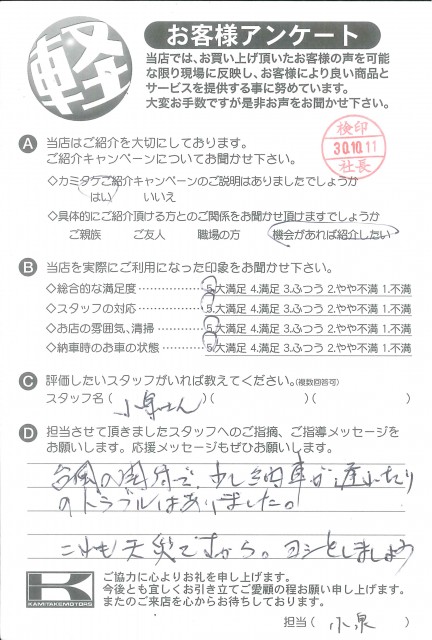 軽
お客様アンケート
当店では、お買い上げ頂いたお客様の声を可能
な限り現場に反映し、お客様により良い商品と
サービスを提供する事に努めています。
大変お手数ですが是非お声をお聞かせ下さい。
検印
30.10.11
社長
A 当店はご紹介を大切にしております。
ご紹介キャンペーンについてお聞かせ下さい。
◇カミタケご紹介キャンペーンのご説明はありましたでしょうか
はい いいえ
◇具体的にご紹介頂ける方とのご関係をお聞かせ頂けますでしょうか
ご親族 ご友人 職場の方 機会があれば紹介したい
B 当店を実際にご利用になった印象をお聞かせ下さい。
◇総合的な満足度 …………… 5.大満足 4.満足 3.ふつう 2.やや不満 1.不満
◇スタッフの対応 …………… 5.大満足 4.満足 3.ふつう 2.やや不満 1.不満
◇お店の雰囲気、清掃 ……… 5.大満足 4.満足 3.ふつう 2.やや不満 1.不満
◇納車時のお車の状態 ……… 5.大満足 4.満足 3.ふつう 2.やや不満 1.不満
C 評価したいスタッフがいれば教えてください。(複数回答可)
スタッフ名 ( 小泉さん )( )( )
D 担当させて頂きましたスタッフへのご指摘、ご指導メッセージを
お願いします。応援メッセージもぜひお願いします。
台風の関係で、少し納車が遅れたり
のトラブルはありました。
これも天災ですから。ヨシとしましょう
K
KAMITAKEMOTORS
ご協力に心よりお礼を申し上げます。
今後とも宜しくお引き立てご愛顧の程お願い申し上げます。
またのご来店を心からお待ちしております。
担当 ( 小泉 )